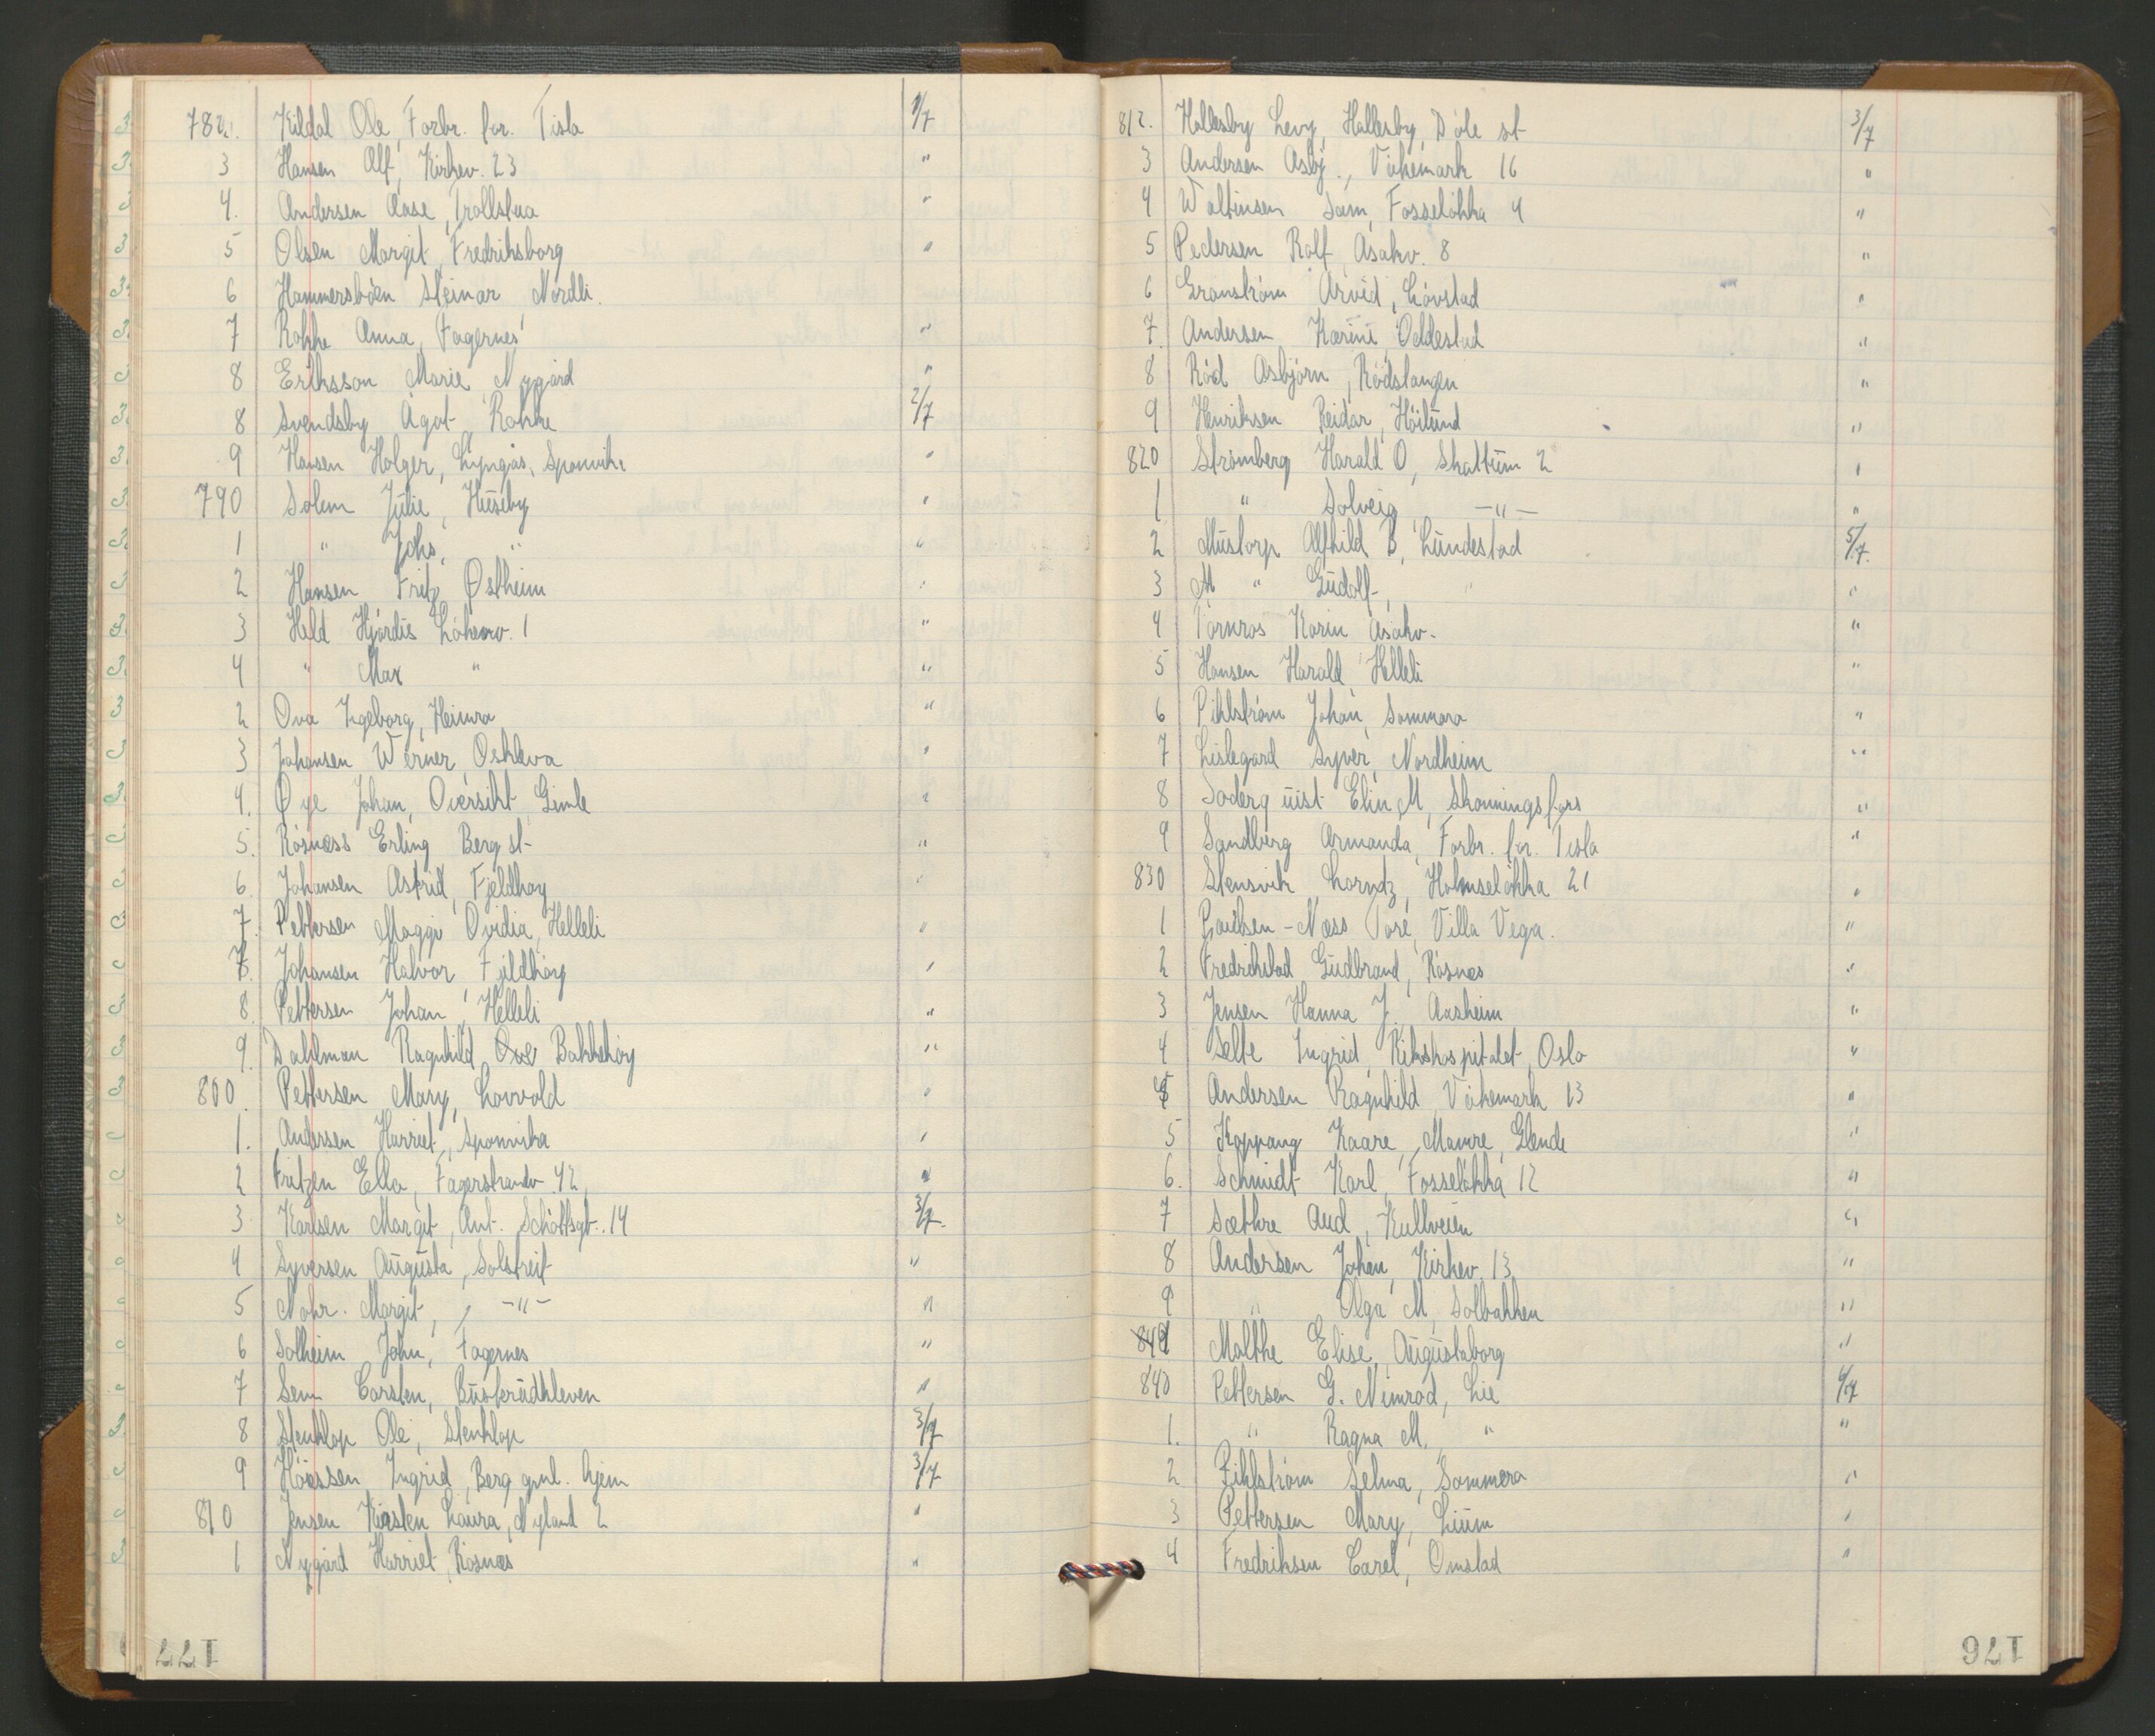 782. Kildal Ole, Forbr. for. Tisla 1/7
3 Hansen Alf, Kirkev. 23 "
4. Andersen Aase, Trollstua "
5 Olsen Margit, Fredriksborg "
6 Hammersbøen Steinar, Nordli.
7 Rokke Anna, Fagernes "
8 Eriksson Marie, Nygård "
8 Svendsby Ågot, Rokke 2/7
9 Hansen Holger, Lyngås, Sponvika "
790 Solem Julie, Huseby "
1 " Johs, " "
2 Hansen Fritz Østheim "
3 Held Hjördis Løkenv. 1 "
4 " Max " "
2 Ova Ingeborg, Heimra "
3 Johansen Werner, Oskleva "
4. Øye Johan, Oversikt, Gimle "
5. Rösness Erling Berg st "
6. Johansen Astrid, Fjeldhøy "
7. Pettersen Maggi Ovidia, Helleli "
7. Johansen Halvor, Fjeldhøy "
8. Pettersen Johan, Helleli "
9. Dahlman Ragnhild Bakkehøy "
800. Pettersen Mary, Lovvold "
1. Andersen Harriet, Sponvika "
2 Fritzen Ella, Fagerstrandv. 42 "
3 Karlsen Margit, Ant. Schøttsgt. 14 3/7
4 Syversen Augusta, Solstreif "
5 Nohr. Margit, -"- "
6 Solheim John, Fagernes "
7 Sem Carsten, Buskrudkleven "
8 Stenklop Ole, Stenklop 3/7
9 Hoessen Ingrid, Berg gml. hjem 3/7
810 Jensen Kirsten Laura, Nyland 2 "
1 Nygård Harriet, Rösnes "
177
812. Hallesby Levy, Hallesby, Dale st 3/7
3 Andersen Asbj., Vikemark 16 "
4 Waltinsen Sam, Fosseløkka 4 "
5 Pedersen Rolf, Åsakv. 8 "
6 Granstrøm Arvid, Løvstad "
7. Andersen Karine, Oddestad "
8 Röd Asbjørn, Rödstangen "
9 Henriksen Reidar, Höilund "
820 Strømberg Harald O, Skattum 2 "
1 " Solveig -"- "
2 Mustorp Alfhild B, Lundestad 5/7.
3 M " Gudolf, " "
4 Törnros Karin Åsakv. "
5 Hansen Harald Helleli "
6 Pihlstrøm Johan, Sommero "
7 Lislegard Syver, Nordheim "
8 Søderquist Elin M, Skonningsfoss "
9 Sandberg Armanda, Forbr. for. Tisla "
830 Stensvik Lorndz, Holmseløkka 21 "
1 Paulsen-Næss Tore, Villa Vega. "
2 Fredrikstad Gudbrand, Rösnes "
3 Jensen Hanna J. Aasheim "
4 Selte Ingrid, Rikshospitalet, Oslo "
5 Andersen Ragnhild, Vikemark 13 "
5 Koppang Kaare, Mamre, Glende "
6. Schmidt Karl, Fosseløkka 12 "
7 Sæthre Aud, Kullveien "
8 Andersen Johan, Kirkev. 13 "
9 " Olga M, Solbakken "
849 Malthe Elise, Augustaborg "
840 Pettersen G. Nimrod, Lie 6/7
1. " Ragna M, " "
2 Pihlstrøm Selma, Sommero "
3 Pettersen Mary, Lium "
4 Fredriksen Carel, Omstad "
176